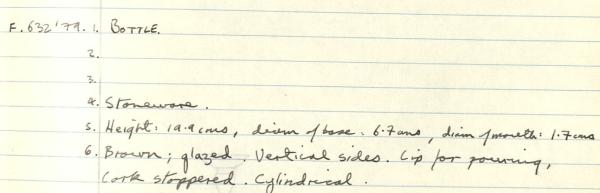 F.632'79. 1. BOTTLE.
2.
3.
4. Stoneware.
5. Height: 19.9 cms, diam of base: 6.7 cms, diam of mouth: 1.7 cms
6. Brown; glazed. Vertical sides. Lip for pouring,
Cork stoppered. Cylindrical.